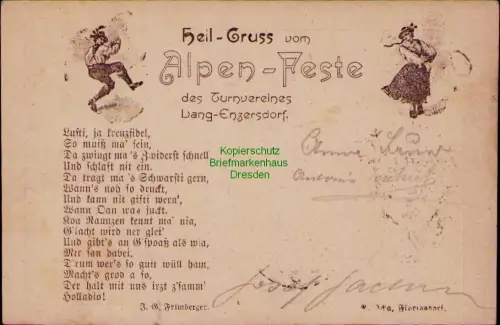 Heil-Gruss vom
Alpen-Feste
des Turnvereines
Lang-Enzersdorf.
Lusti, ja kreuzfidel,
So muiß ma' sein,
Da zwingt ma's Zwiderst schnell
Und schlaft nit ein.
Da tragt ma's Schwarsti gern,
Wann's noh so druckt,
Und kann nit gifti wern',
Wann Oan was juckt.
Koa Raunzen kennt ma' nia,
G'lacht wird ner glei'
Und gibt's an G'spoaß als wia,
Mer san dabei.
D'rum wer's so guit wüll ham,
Macht's grod a so,
Der halt mit uns irzt z'samm'
Holladio!
J. G. Frimberger.
Kopierschutz
Briefmarkenhaus
Dresden
Josef
Floridsdorf.